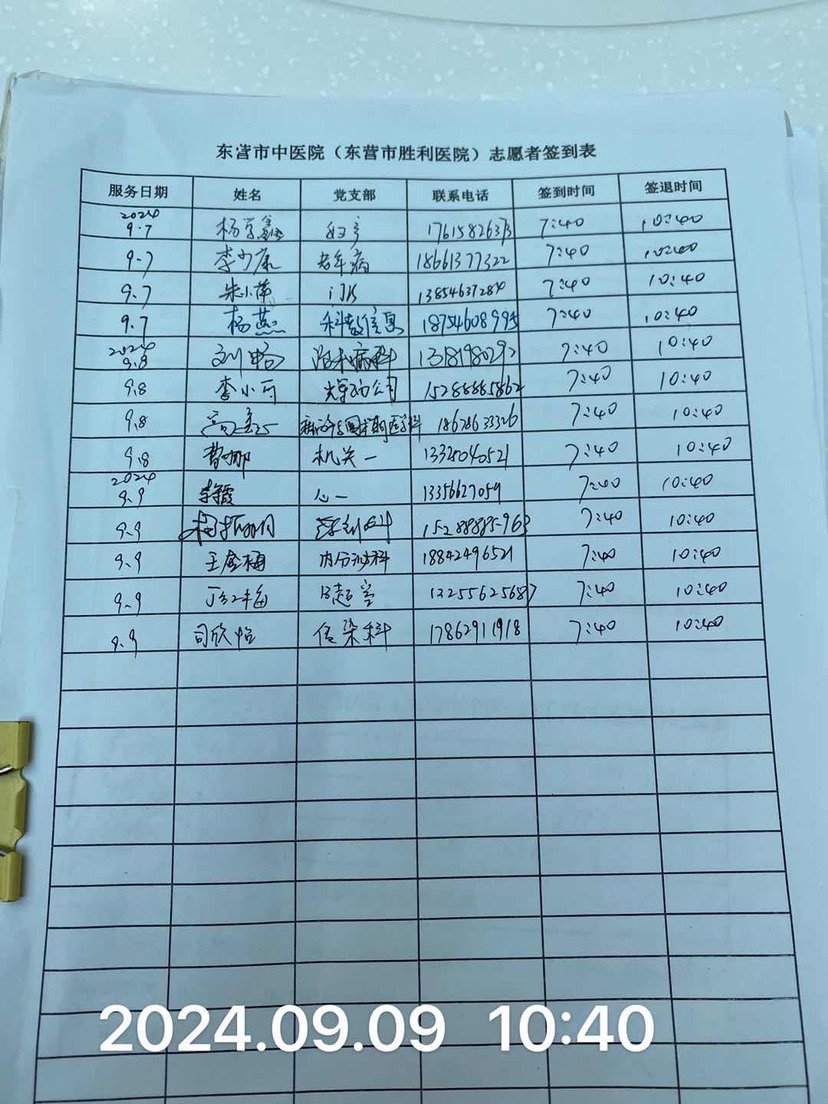 东营市中医院（东营市胜利医院）志愿者签到表
服务日期 姓名 党支部 联系电话 签到时间 签退时间
2024
9.7 杨 妇产 17615826373 7:40 10:40
9.7 李少康 老年病 18661377322 7:40 10:40
9.7 朱小萍 门诊 13854637280 7:40 10:40
9.7 杨燕 科教信息 18754608995 7:40 10:40
2024
9.8 刘畅 7:40 10:40
9.8 李小可 15288885862 7:40 10:40
9.8 18678633326 7:40 10:40
9.8 曹娜 机关一 13325040521 7:40 10:40
2024
9.9 李霞 心一 13356627059 7:40 10:40
9.9 7:40 10:40
9.9 王金梅 内分泌科 18842496521 7:40 10:40
9.9 丁红梅 B超室 13255625687 7:40 10:40
9.9 司欣怡 传染科 17862911918 7:40 10:40
2024.09.09 10:40